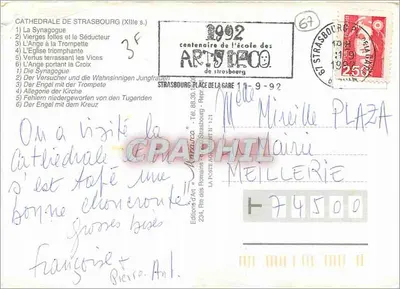 CATHEDRALE DE STRASBOURG (XIIIe s.)
1) La Synagogue
2) Vierges folles et le Séducteur
3) L'Ange à la Trompette
4) L'Eglise triomphante
5) Vertus terrassant les Vices
6) L'Ange portant la Croix
1) Die Synagoge
2) Der Versucher und die Wahnsinnigen Jungfrauen
3) Der Engel mit der Trompete
4) Allegorie der Kirche
5) Fehlern niedergeworfen von den Tugenden
6) Der Engel mit dem Kreuz
3F
67
1992
centenaire de l'école des
ARTS DECO
de strasbourg
STRASBOURG PLACE DE LA GARE 11-9-92
67 STRASBOURG
2,50
On a visité la
Cathédrale
s'est tapé une
bonne choucroute
grosses bises
Françoise +
Pierre-Ant.
Melle Mireille PLAZA
Mairie
MEILLERIE
74500
DELCAMPHIL